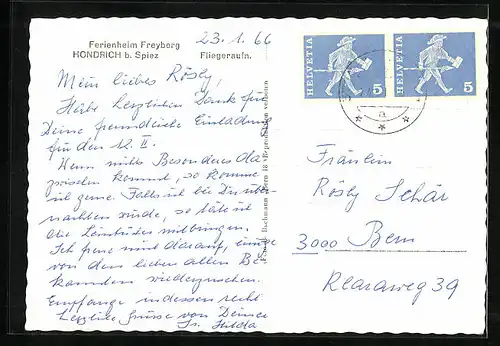 Ferienheim Freyberg
HONDRICH b. Spiez Fliegeraufn.
23.1.66
Mein liebes Rösly,
Habe herzlichen Dank für
Deine freundliche Einladung
für den 12. II.
Wenn nichts Besonderes da-
zwischen kommt, so komme
ich gerne. Falls ich bei Dir über-
nachten würde, so täte ich
die Leintücher mitbringen.
Ich freue mich darauf, eines
von den lieben alten Be-
kannten wiederzusehen.
Empfange indessen recht
herzliche Grüsse von Deiner
Hilda
HELVETIA 5
HELVETIA 5
a
Fräulein
Rösly Schär
3000 Bern
Klaraweg 39